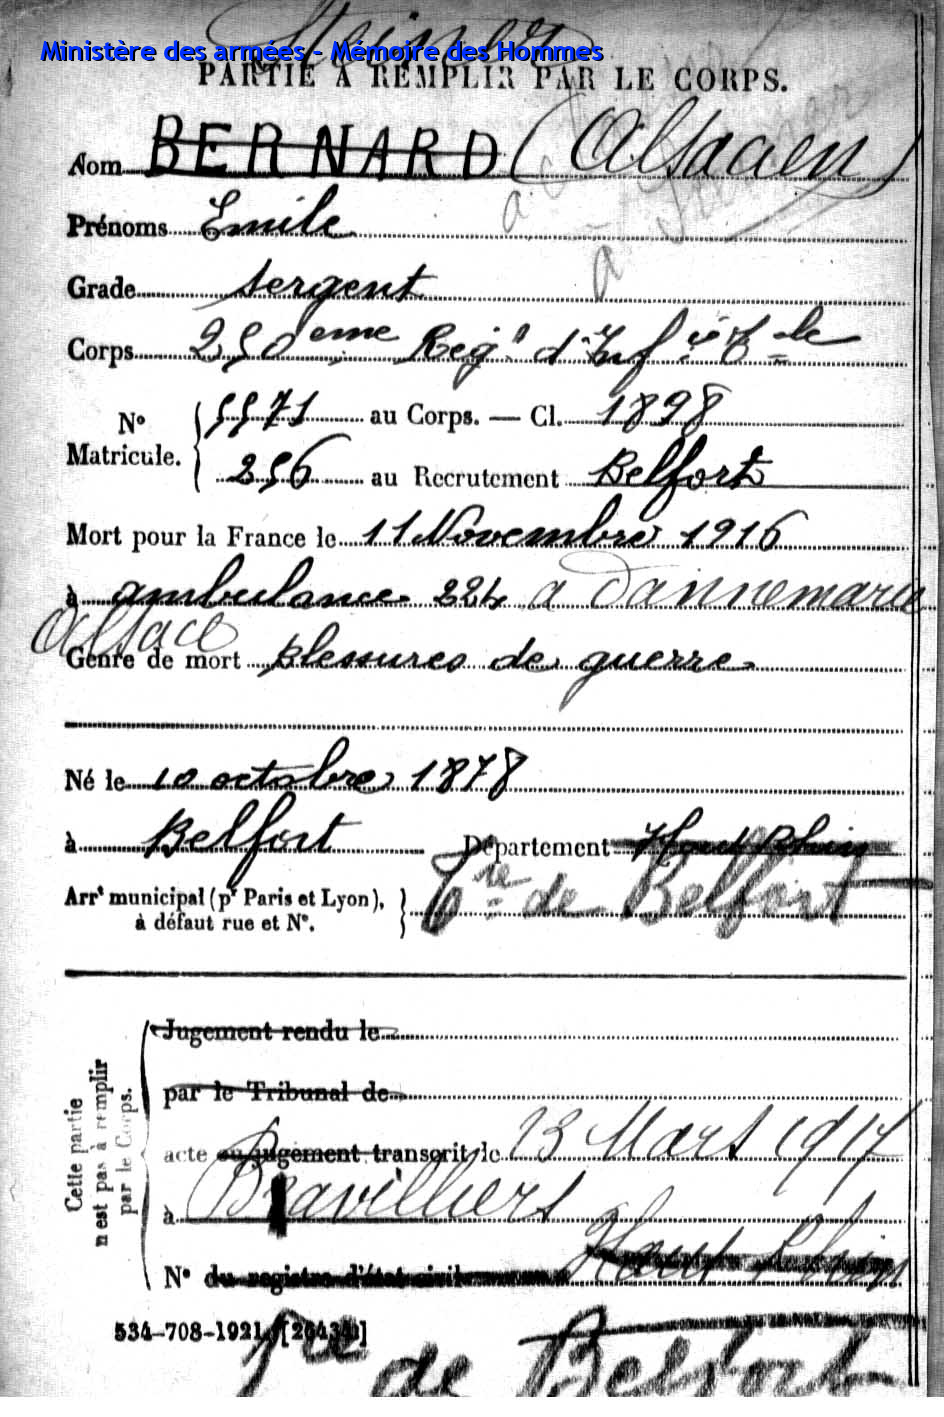 Steiner
Ministère des armées - Mémoire des Hommes
PARTIE À REMPLIR PAR LE CORPS.
Nom BERNARD (Alsacien)
Prénoms Emile
Grade sergent
Corps 250eme Regt d'Infie Tle
N° Matricule. 5571 au Corps. — Cl. 1898
256 au Recrutement Belfort
Mort pour la France le 11 Novembre 1916
à ambulance 224 a Dannemarie
Alsace
Genre de mort blessures de guerre
Né le 10 octobre 1878
à Belfort Département Haut Rhin
Arrt municipal (pr Paris et Lyon), à défaut rue et N°. Tre de Belfort
Cette partie n'est pas à remplir par le Corps.
Jugement rendu le
par le Tribunal de
acte ou jugement transcrit le 23 Mars 1917
à Bravilliers
Haut Rhin
N° du registre d'état civil
534-708-1921. [26434]
Tre de Belfort